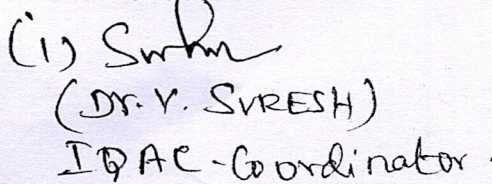 (i)
(Dr. V. SURESH)
IQAC-Coordinator.